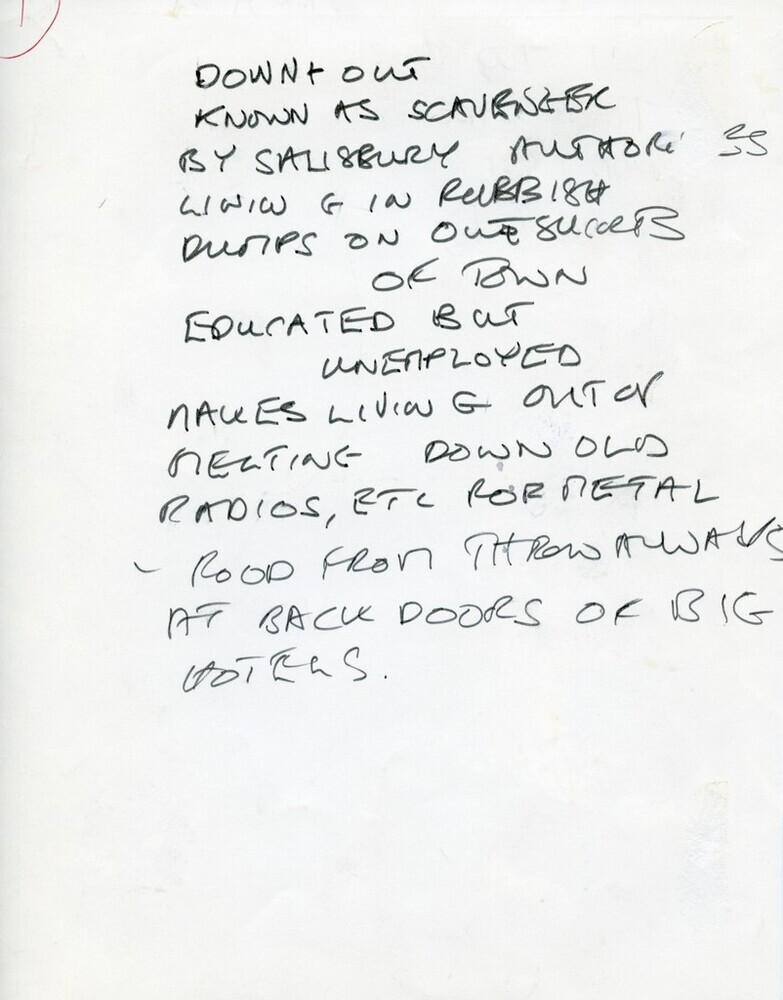 DOWN + OUT
KNOWN AS SCAVENGER
BY SALISBURY
LIVING IN RUBBISH
DUMPS ON OUTSKIRTS
OF TOWN
EDUCATED BUT
UNEMPLOYED
MAKES LIVING OUT OF
MELTING DOWN OLD
RADIOS, ETC FOR METAL
- FOOD FROM THROW AWAYS
AT BACK DOORS OF BIG
HOTELS.